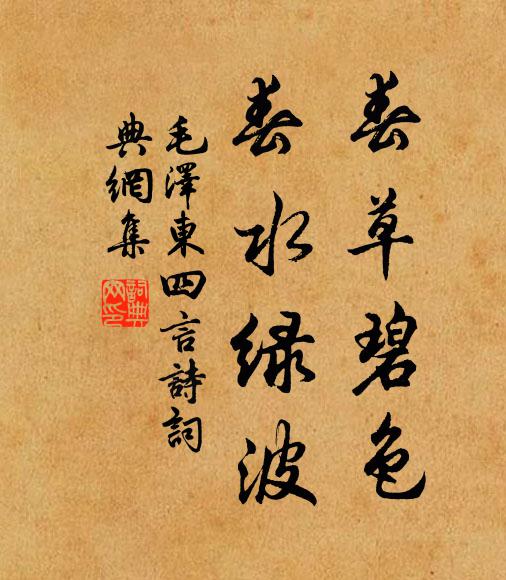 春草碧色
春水绿波
毛澤東四言詩詞
典網集
詞典網印